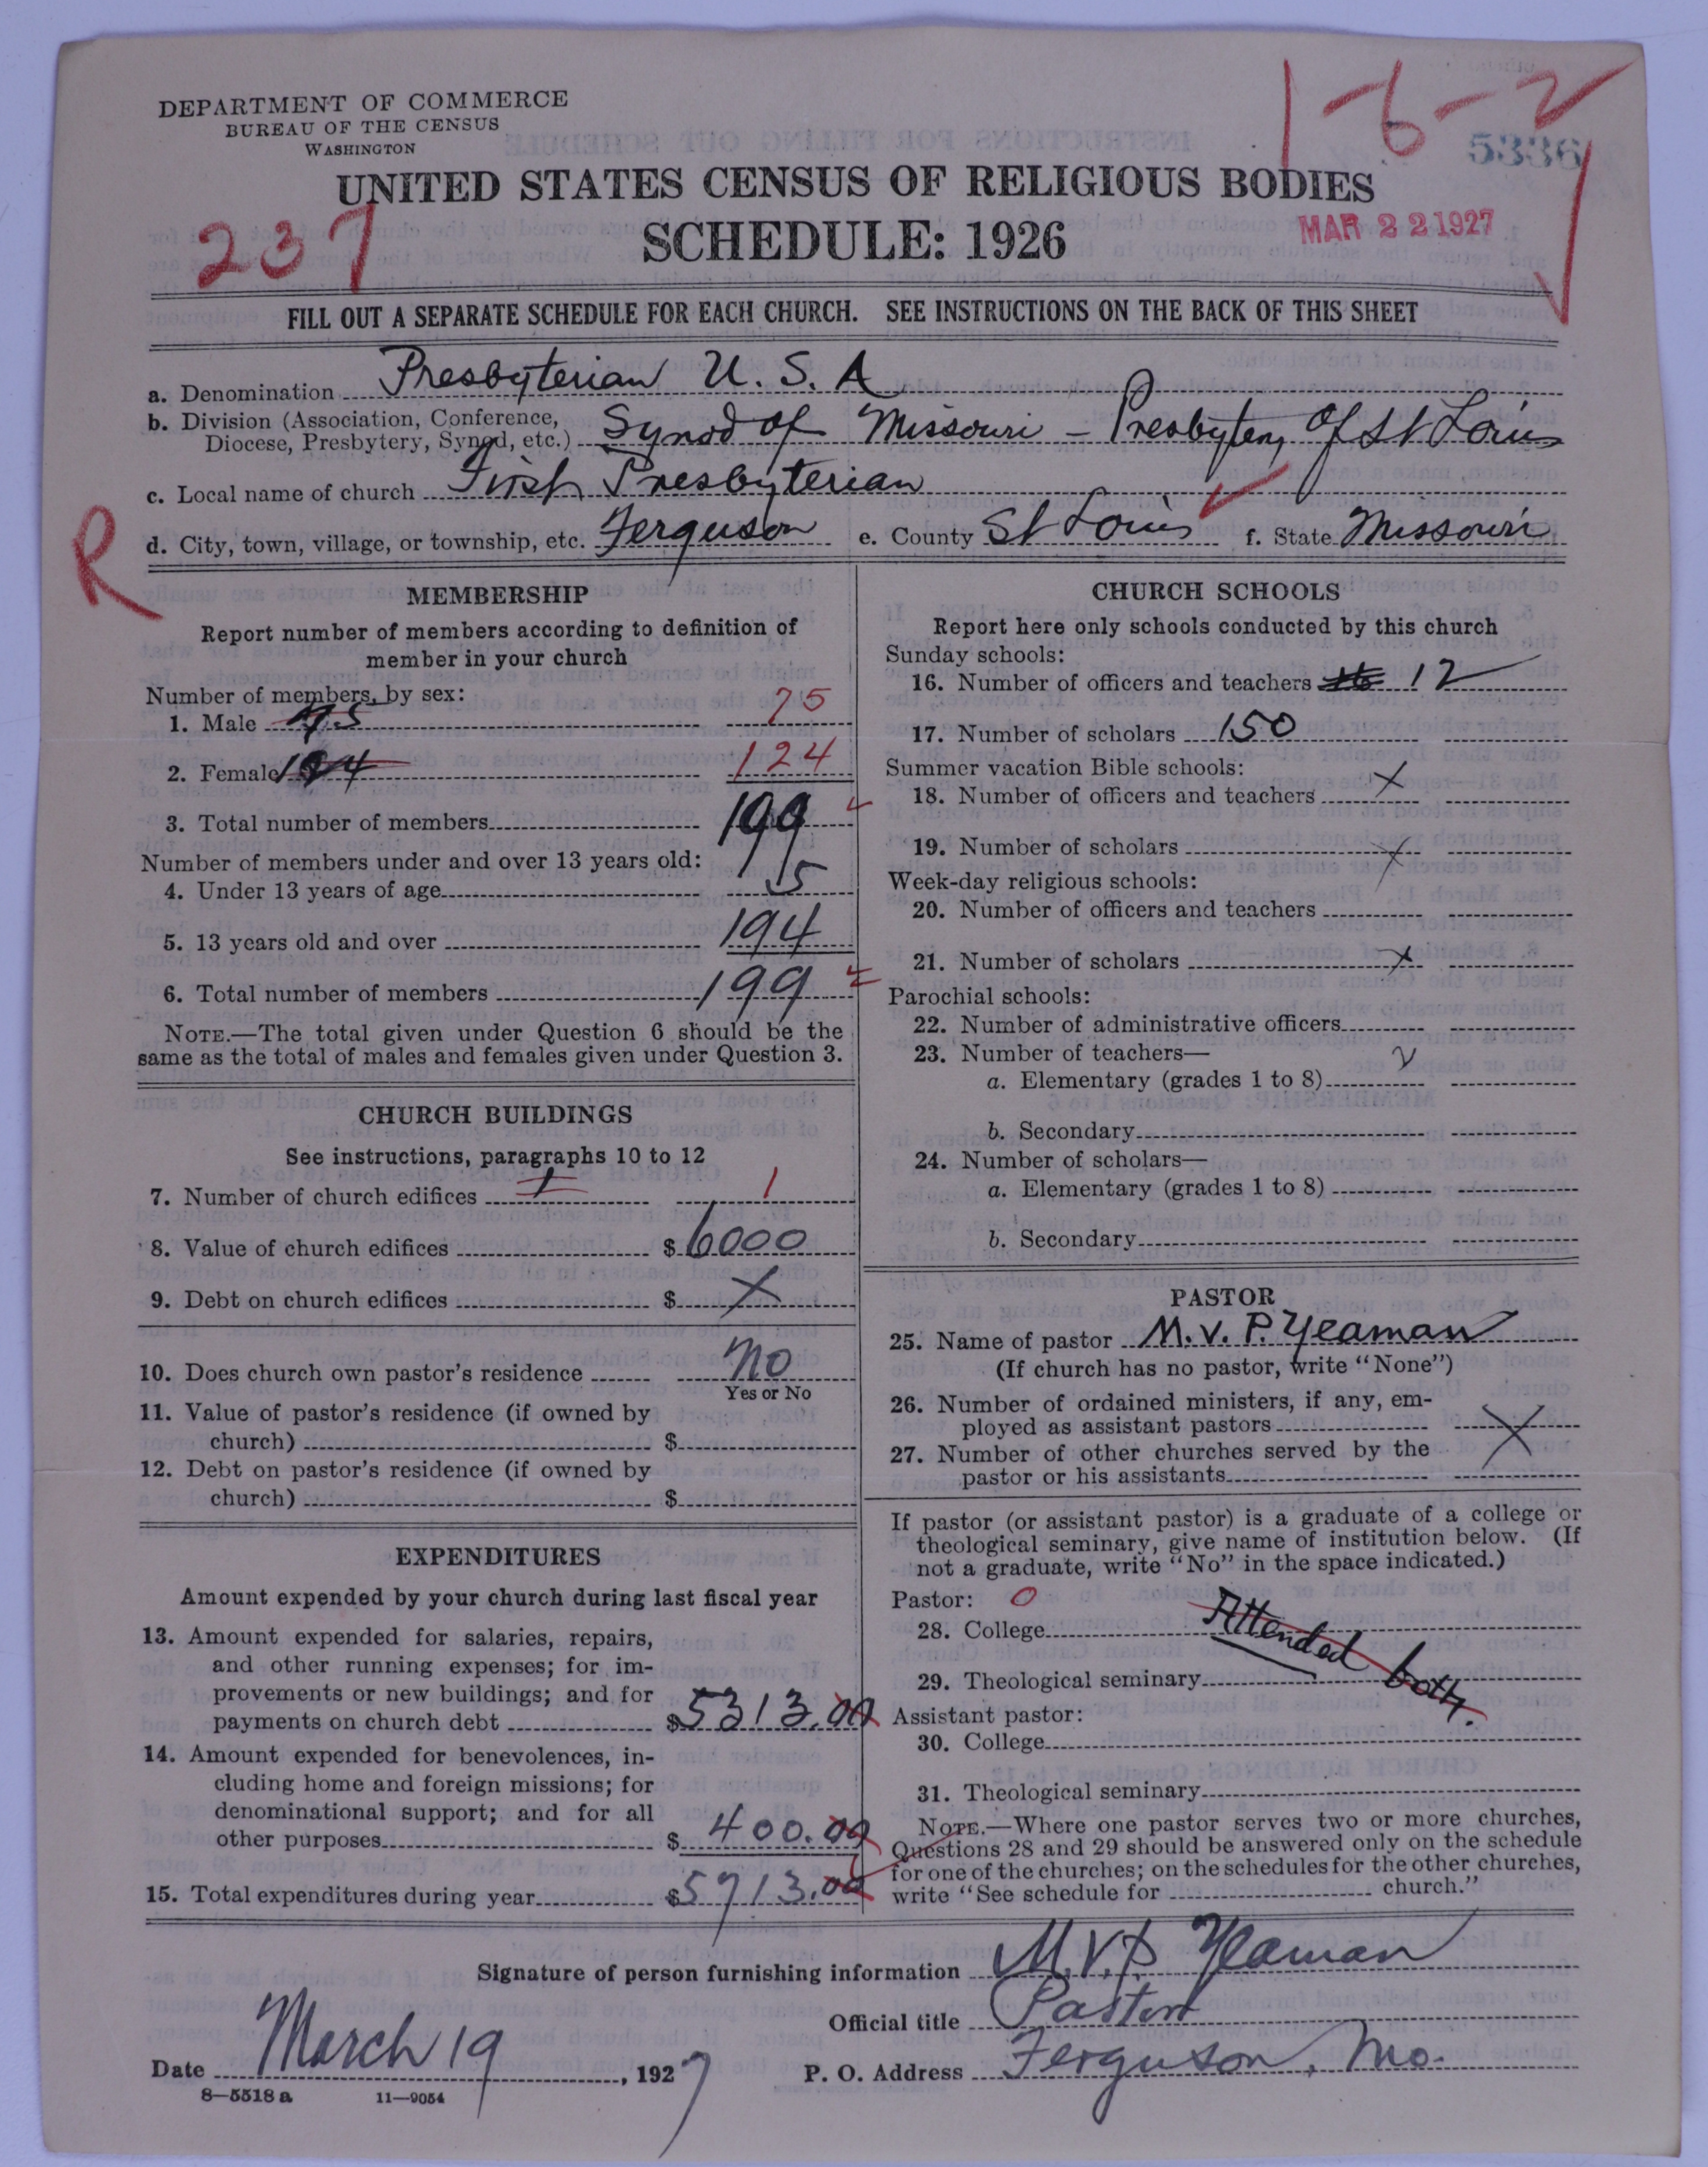 1-6-2
5336
DEPARTMENT OF COMMERCE
BUREAU OF THE CENSUS
WASHINGTON
UNITED STATES CENSUS OF RELIGIOUS BODIES
237
SCHEDULE: 1926
MAR 22 1927
FILL OUT A SEPARATE SCHEDULE FOR EACH CHURCH. SEE INSTRUCTIONS ON THE BACK OF THIS SHEET
a. Denomination Presbyterian U. S. A
b. Division (Association, Conference,
Diocese, Presbytery, Synod, etc.) Synod of Missouri - Presbytery of St Louis
c. Local name of church First Presbyterian
R
d. City, town, village, or township, etc. Ferguson e. County St Louis f. State Missouri
MEMBERSHIP
Report number of members according to definition of
member in your church
Number of members, by sex:
1. Male 75 75
2. Female 124
3. Total number of members 199
Number of members under and over 13 years old:
4. Under 13 years of age 5
5. 13 years old and over 194
6. Total number of members 199
NOTE.—The total given under Question 6 should be the
same as the total of males and females given under Question 3.
CHURCH BUILDINGS
See instructions, paragraphs 10 to 12
7. Number of church edifices 1 1
8. Value of church edifices $ 6000
9. Debt on church edifices $ X
10. Does church own pastor's residence No
Yes or No
11. Value of pastor's residence (if owned by
church) $
12. Debt on pastor's residence (if owned by
church) $
EXPENDITURES
Amount expended by your church during last fiscal year
13. Amount expended for salaries, repairs,
and other running expenses; for im-
provements or new buildings; and for
payments on church debt $ 5313.00
14. Amount expended for benevolences, in-
cluding home and foreign missions; for
denominational support; and for all
other purposes $ 400.00
15. Total expenditures during year $ 5713.00
CHURCH SCHOOLS
Report here only schools conducted by this church
Sunday schools:
16. Number of officers and teachers 12
17. Number of scholars 150
Summer vacation Bible schools:
18. Number of officers and teachers X
19. Number of scholars X
Week-day religious schools:
20. Number of officers and teachers
21. Number of scholars X
Parochial schools:
22. Number of administrative officers
23. Number of teachers—
a. Elementary (grades 1 to 8)
b. Secondary
24. Number of scholars—
a. Elementary (grades 1 to 8)
b. Secondary
PASTOR
25. Name of pastor M. V. P. Yeaman
(If church has no pastor, write "None")
26. Number of ordained ministers, if any, em-
ployed as assistant pastors X
27. Number of other churches served by the
pastor or his assistants
If pastor (or assistant pastor) is a graduate of a college or
theological seminary, give name of institution below. (If
not a graduate, write "No" in the space indicated.)
Pastor: 0
28. College Attended both.
29. Theological seminary
Assistant pastor:
30. College
31. Theological seminary
NOTE.—Where one pastor serves two or more churches,
Questions 28 and 29 should be answered only on the schedule
for one of the churches; on the schedules for the other churches,
write "See schedule for church."
Signature of person furnishing information M. V. P. Yeaman
Official title Pastor
Date March 19, 1927 P. O. Address Ferguson, Mo.
8—5518 a 11—9054